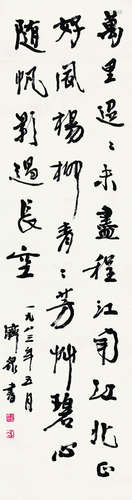 萬里迢〻未盡程江南江北正
好風楊柳青〻芳艸碧心
随帆影過長空
一九八三年五月
書